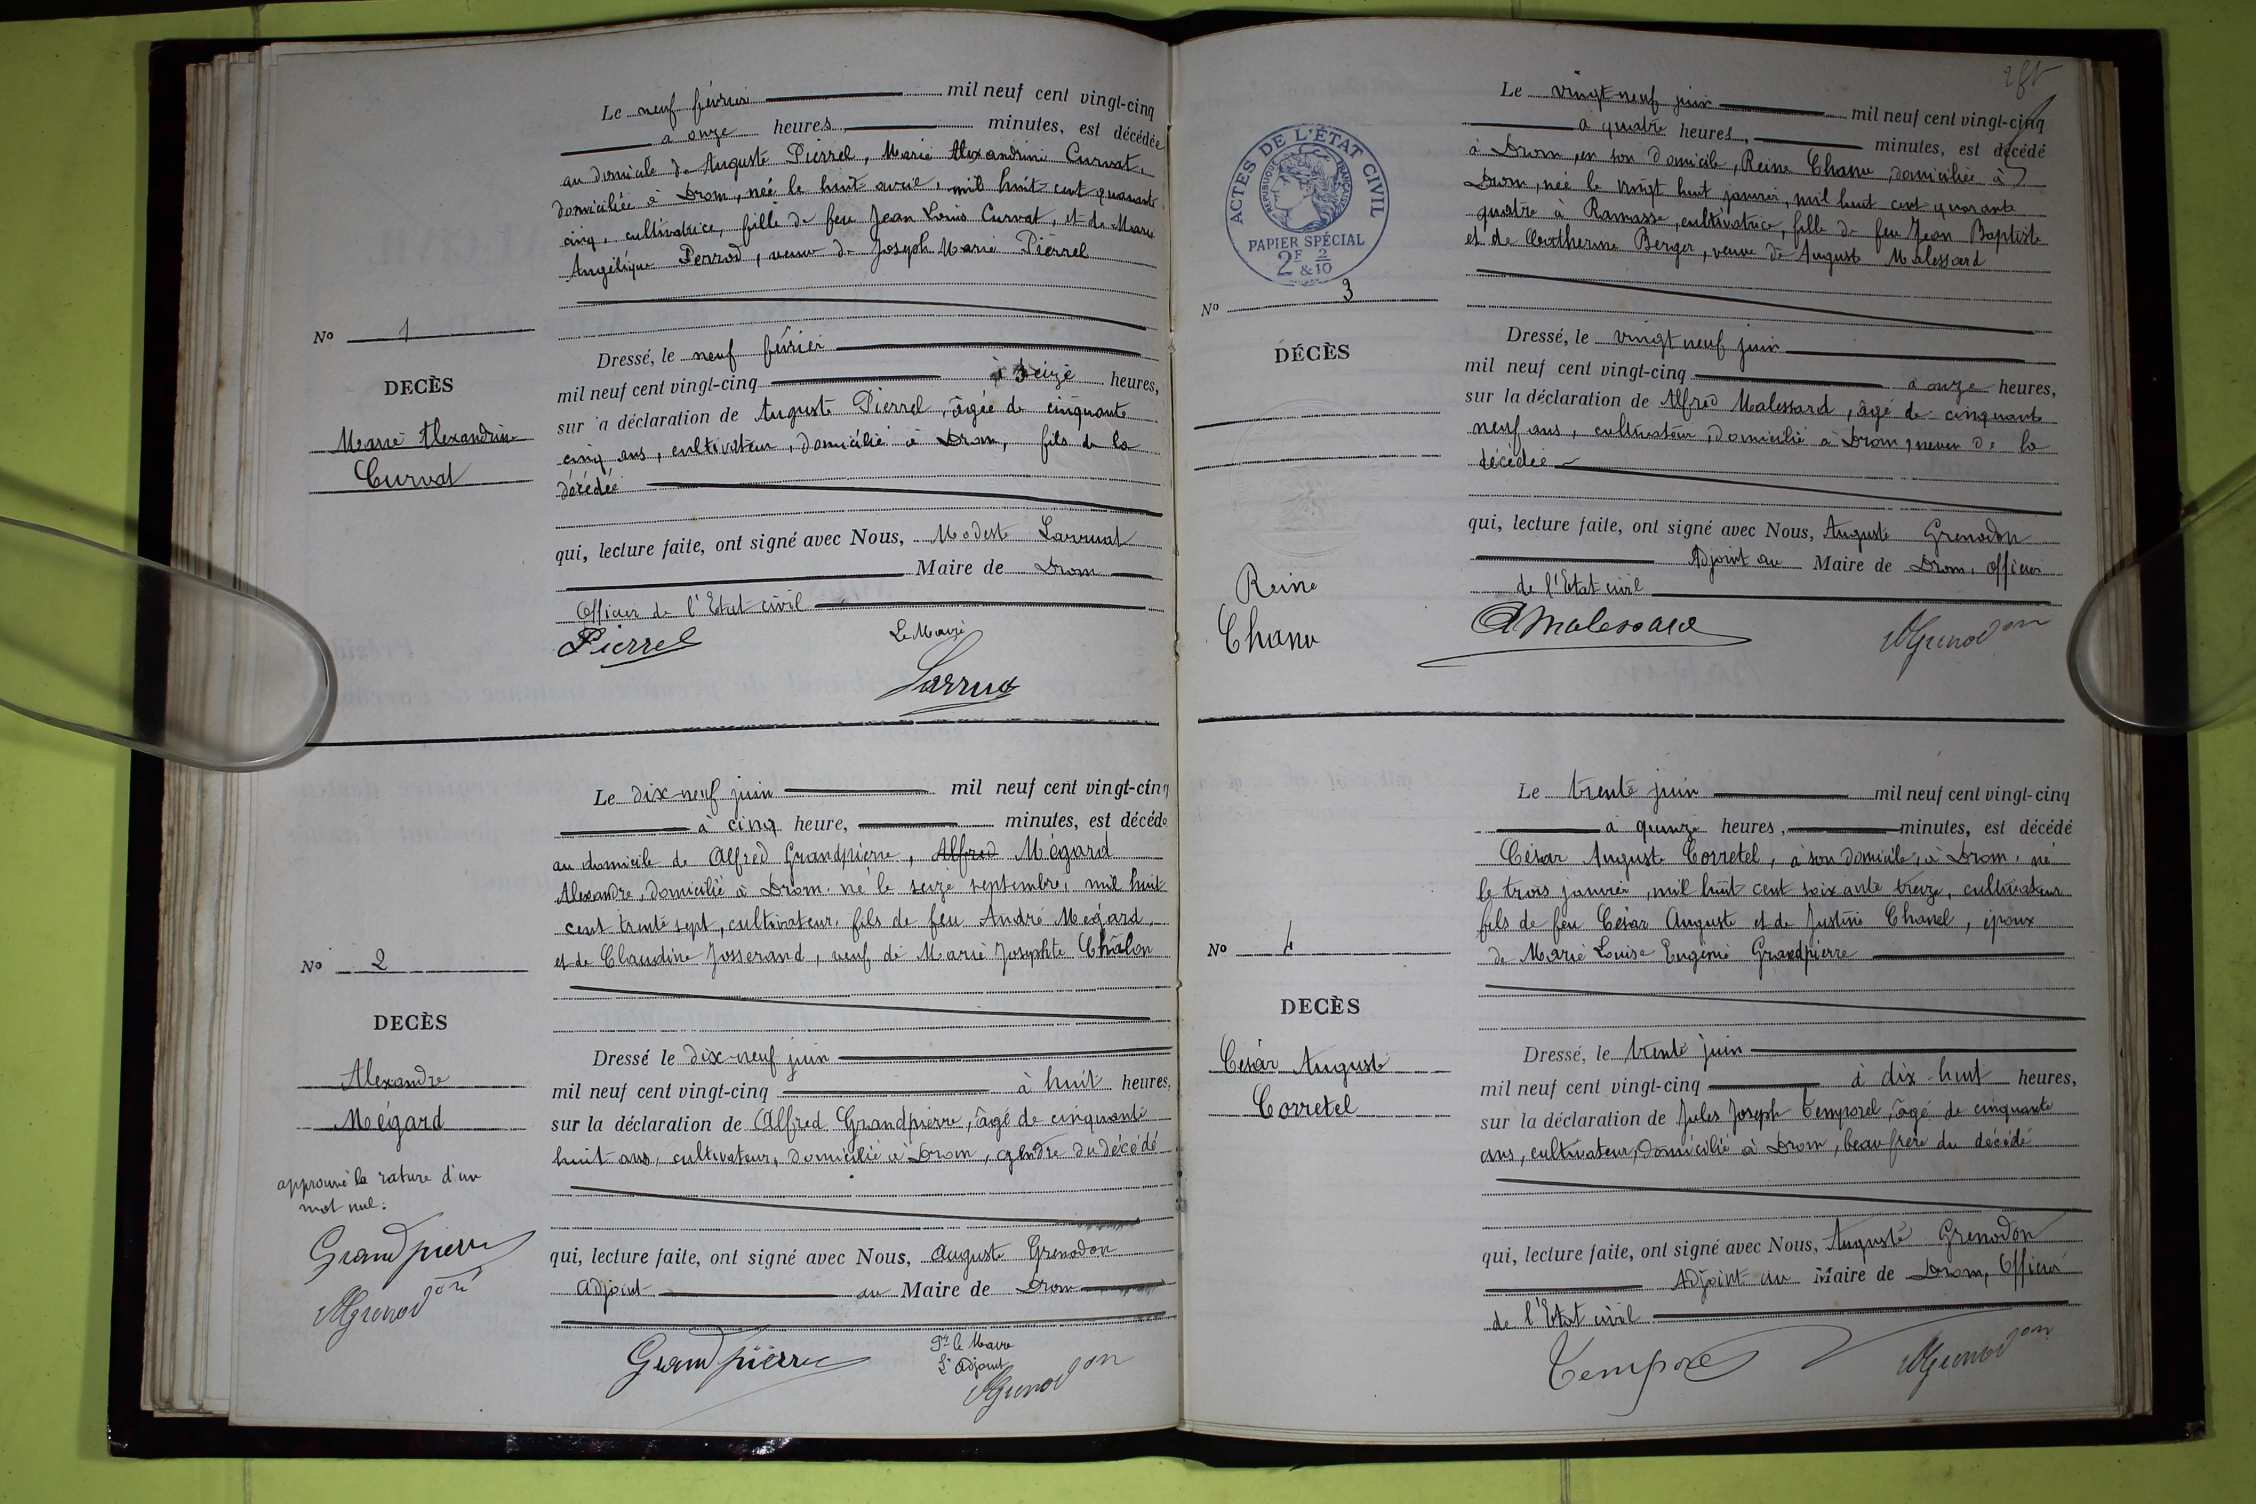 Le neuf février mil neuf cent vingt-cinq
à onze heures, minutes, est décédée
au domicile de Auguste Pierrel, Marie Alexandrine Curvat,
domiciliée à Drom, née le huit avril, mil huit cent quarante
cinq, cultivatrice, fille de feu Jean Louis Curvat, et de Marie
Angélique Perrod, veuve de Joseph Marie Pierrel
No 1
DECÈS
Marie Alexandrine
Curvat
Dressé, le neuf février
mil neuf cent vingt-cinq à seize heures,
sur la déclaration de Auguste Pierrel, âgée de cinquante
cinq ans, cultivateur, domicilié à Drom, fils de la
décédée
qui, lecture faite, ont signé avec Nous, Modeste Larruat
Maire de Drom
Officier de l'Etat civil
Pierrel
Le Maire
Larruat
Le dix-neuf juin mil neuf cent vingt-cinq
à cinq heure, minutes, est décédé
au domicile de Alfred Grandpierre, Alfred Mégard
Alexandre, domicilié à Drom, né le seize septembre, mil huit
cent trente sept, cultivateur, fils de feu André Mégard,
et de Claudine Josserand, veuf de Marie Josephte Châlon
No 2
DECÈS
Alexandre
Mégard
approuvé la rature d'un
mot nul:
Grandpierre
AGrenodon
Dressé le dix-neuf juin
mil neuf cent vingt-cinq à huit heures,
sur la déclaration de Alfred Grandpierre, âgé de cinquante
huit ans, cultivateur, domicilié à Drom, gendre du décédé
qui, lecture faite, ont signé avec Nous, Auguste Grenodon
Adjoint au Maire de Drom
Grandpierre
Pr le Maire
L'Adjoint
AGrenodon
ACTES DE L'ÉTAT CIVIL
REPUBLIQUE FRANÇAISE
PAPIER SPÉCIAL
2F 2/10
&
Le vingt neuf juin mil neuf cent vingt-cinq
à quatre heures, minutes, est décédé
à Drom, en son domicile, Reine Chanu, domiciliée à
Drom, née le vingt huit janvier, mil huit cent quarante
quatre à Ramasse, cultivatrice, fille de feu Jean Baptiste
et de Catherine Berger, veuve de Auguste Malessard
No 3
DÉCÈS
Reine
Chanu
Dressé, le vingt neuf juin
mil neuf cent vingt-cinq à onze heures,
sur la déclaration de Alfred Malessard, âgé de cinquante
neuf ans, cultivateur, domicilié à Drom, neveu de la
décédée
qui, lecture faite, ont signé avec Nous, Auguste Grenodon
Adjoint au Maire de Drom, officier
de l'Etat civil
AMalessard
AGrenodon
Le trente juin mil neuf cent vingt-cinq
à quinze heures, minutes, est décédé
César Auguste Corretel, à son domicile, à Drom, né
le trois janvier, mil huit cent soixante treize, cultivateur
fils de feu César Auguste et de Justine Chanel, époux
de Marie Louise Eugénie Grandpierre
No 4
DECÈS
César Auguste
Corretel
Dressé, le trente juin
mil neuf cent vingt-cinq à dix-huit heures,
sur la déclaration de Jules Joseph Temporel, âgé de cinquante
ans, cultivateur, domicilié à Drom, beau frère du décédé
qui, lecture faite, ont signé avec Nous, Auguste Grenodon
Adjoint au Maire de Drom, Officier
de l'Etat civil
Temporel
AGrenodon